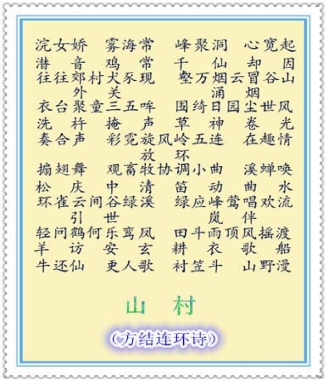 浣女娇 雾海常 峰聚洞 心宽起
潜音鸡常 千仙却因
往往郊村犬豕现 壑万烟云冒谷山
外关 涌烟
衣台聚童三五哞 围绮日园尘世风
洗杵掩声 草神卷光
奏合声 彩霓旋风岭五连 在趣情
放环
搧翅舞 观畜牧协调小曲 溪蝉唤
松庆中清 笛动曲水
环雀云间谷绿溪 绿应峰莺唱欢流
引世 岚伴
轻问鹤何乐鸾凤 田斗雨顶风摇渡
羊访安玄 耕衣歌船
牛还仙 更人歌 衬笠斗 山野漫
山 村
(方结连环诗)